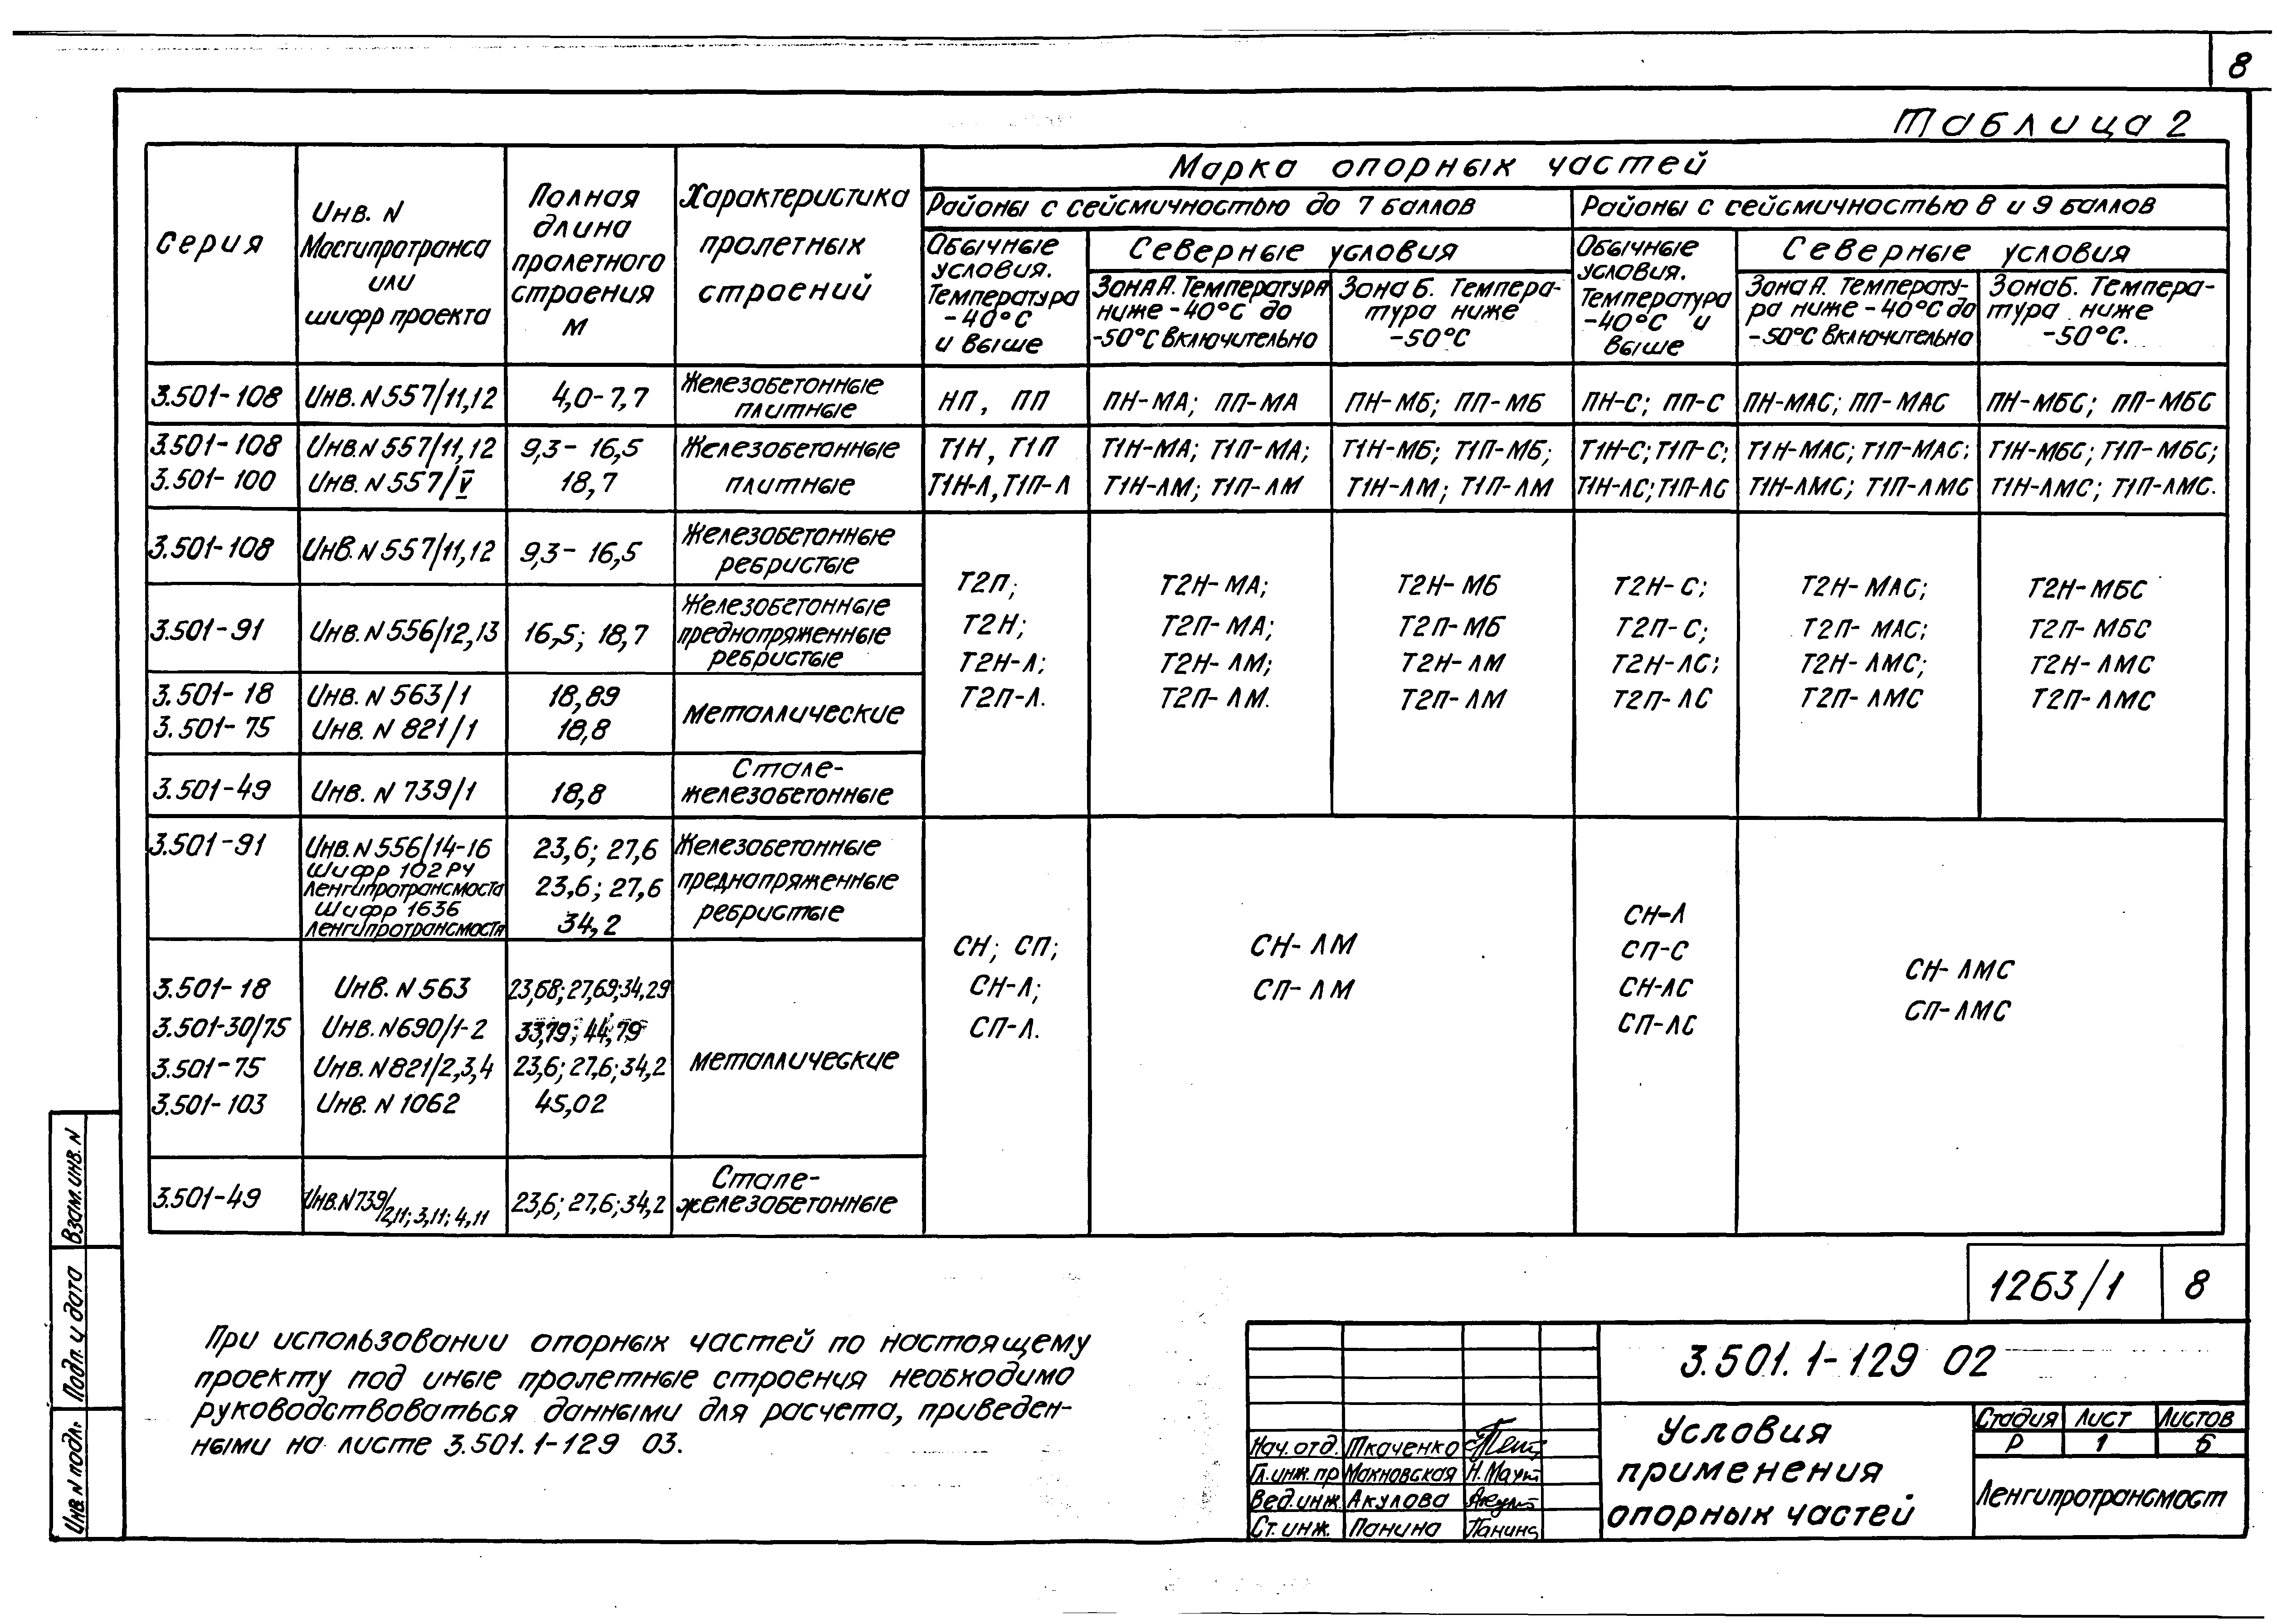 8
Таблица 2
Серия
Инв. N
Мосгипротранса
или
шифр проекта
Полная
длина
пролетного
строения
м
Характеристика
пролетных
строений
Марка опорных частей
Районы с сейсмичностью до 7 баллов
Районы с сейсмичностью 8 и 9 баллов
Обычные
условия.
Температура
-40°С
и выше
Северные условия
Зона А. Температура
ниже -40°С до
-50°С включительно
Зона Б. Темпера-
тура ниже
-50°С
Обычные
условия.
Температура
-40°С и
выше
Северные условия
Зона А. Температу-
ра ниже -40°С до
-50°С включительно
Зона Б. Темпера-
тура ниже
-50°С.
3.501-108 Инв. N 557/11,12 4,0-7,7 Железобетонные
плитные
НП, ПП ПН-МА; ПП-МА ПН-МБ; ПП-МБ ПН-С; ПП-С ПН-МАС; ПП-МАС ПН-МБС; ПП-МБС
3.501-108 Инв. N 557/11,12 9,3-16,5 Железобетонные Т1Н, Т1П Т1Н-МА; Т1П-МА; Т1Н-МБ; Т1П-МБ; Т1Н-С; Т1П-С; Т1Н-МАС; Т1П-МАС; Т1Н-МБС; Т1П-МБС;
3.501-100 Инв. N 557/V 18,7 плитные Т1Н-Л, Т1П-Л Т1Н-ЛМ; Т1П-ЛМ Т1Н-ЛМ; Т1П-ЛМ Т1Н-ЛС; Т1П-ЛС Т1Н-ЛМС; Т1П-ЛМС Т1Н-ЛМС; Т1П-ЛМС.
3.501-108 Инв. N 557/11,12 9,3-16,5 Железобетонные
ребристые
3.501-91 Инв. N 556/12,13 16,5; 18,7 Железобетонные
преднапряженные
ребристые
3.501-18 Инв. N 563/1 18,89
3.501-75 Инв. N 821/1 18,8
металлические
3.501-49 Инв. N 739/1 18,8 Стале-
железобетонные
Т2П; Т2Н-МА; Т2Н-МБ Т2Н-С; Т2Н-МАС; Т2Н-МБС
Т2Н; Т2П-МА; Т2П-МБ Т2П-С; Т2П-МАС; Т2П-МБС
Т2Н-Л; Т2Н-ЛМ; Т2Н-ЛМ Т2Н-ЛС; Т2Н-ЛМС; Т2Н-ЛМС
Т2П-Л. Т2П-ЛМ. Т2П-ЛМ Т2П-ЛС Т2П-ЛМС Т2П-ЛМС
3.501-91 Инв. N 556/14-16 23,6; 27,6 Железобетонные
Шифр 102РЧ
Ленгипротрансмоста 23,6; 27,6 преднапряженные
Шифр 1636
Ленгипротрансмоста 34,2 ребристые
3.501-18 Инв. N 563 23,68; 27,69; 34,29
3.501-30/75 Инв. N 690/1-2 33,79; 44,79
3.501-75 Инв. N 821/2,3,4 23,6; 27,6; 34,2
3.501-103 Инв. N 1062 45,02
металлические
3.501-49 Инв. N 739/2,11; 3,11; 4,11 23,6; 27,6; 34,2 Стале-
железобетонные
СН; СП;
СН-Л;
СП-Л.
СН-ЛМ
СП-ЛМ
СН-Л
СП-С
СН-ЛС
СП-ЛС
СН-ЛМС
СП-ЛМС
При использовании опорных частей по настоящему
проекту под иные пролетные строения необходимо
руководствоваться данными для расчета, приведен-
ными на листе 3.501.1-129 03.
1263/1 8
3.501.1-129 02
Условия
применения
опорных частей
Стадия Лист Листов
Р 1 6
Ленгипротрансмост
Нач. отд. Ткаченко
Гл. инж. пр Макновская
Вед. инж. Акулова
Ст. инж. Панина Панина
Взам. инв. N
Подп. и дата
Инв. N подл.